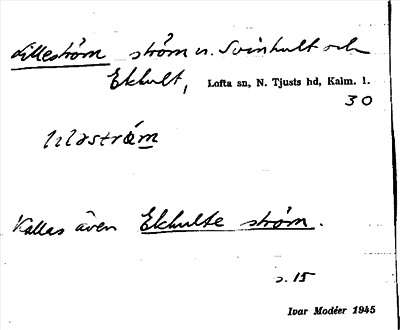 Lilleström ström n. Svinhult och
Ekhult, Lofta sn, N. Tjusts hd, Kalm. l.
30
Kallas även Ekhulte ström.
s. 15
Ivar Modéer 1945